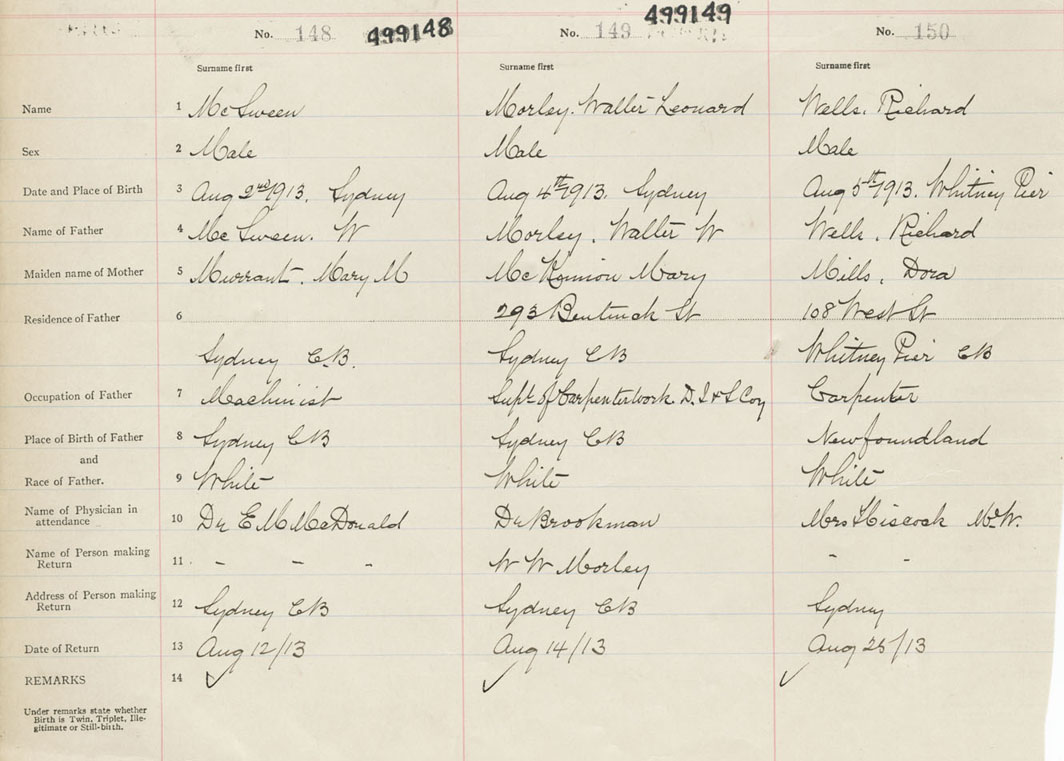 No. 148 499148 No. 149 499149 No. 150
Surname first Surname first Surname first
Name 1 McSween Morley. Walter Leonard Wells. Richard
Sex 2 Male Male Male
Date and Place of Birth 3 Aug 2nd 1913. Sydney Aug 4th 1913. Sydney Aug 5th 1913. Whitney Pier
Name of Father 4 McSween. W Morley. Walter W Wells. Richard
Maiden name of Mother 5 Murrant. Mary M McKinnon Mary Mills, Dora
Residence of Father 6 293 Bentinck St 108 West St
Sydney C.B. Sydney CB Whitney Pier CB
Occupation of Father 7 Machinist Supt of Carpenterwork. D. I & S Coy Carpenter
Place of Birth of Father 8 Sydney CB Sydney CB Newfoundland
and
Race of Father. 9 White White White
Name of Physician in
attendance 10 Dr E M McDonald Dr Brookman Mrs Hiscock M.W.
Name of Person making
Return 11 - - - W W Morley - -
Address of Person making
Return 12 Sydney CB Sydney CB Sydney
Date of Return 13 Aug 12/13 Aug 14/13 Aug 25/13
REMARKS 14 ✓ ✓ ✓
Under remarks state whether
Birth is Twin, Triplet, Ille-
gitimate or Still-birth.